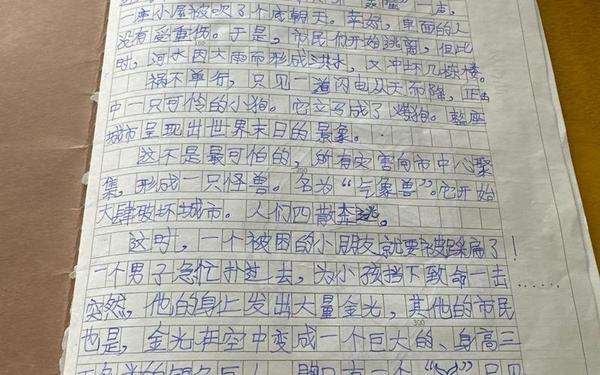 一声,
座小屋被吹了个底朝天。幸好,里面的人
没有受重伤。于是,市民们开始逃离,但此
时,河水因大雨而形成洪水,又冲坏几栋楼。
祸不单行,只见一道闪电从天而降,正击
中一只可怜的小狗。它立马成了烤狗。整座
城市呈现出世界末日的景象。
300
这不是最可怕的,所有灾害向市中心聚
集,形成一只怪兽。名为“气象兽”。它开始
大肆破坏城市。人们四散奔逃。
这时,一个被困的小朋友就要被踩扁了!
一个男子急忙扑过去,为小孩挡下致命一击……
突然,他的身上发出大量金光,其他的市民
也是,金光在空中变成一个巨大的、身高三
300